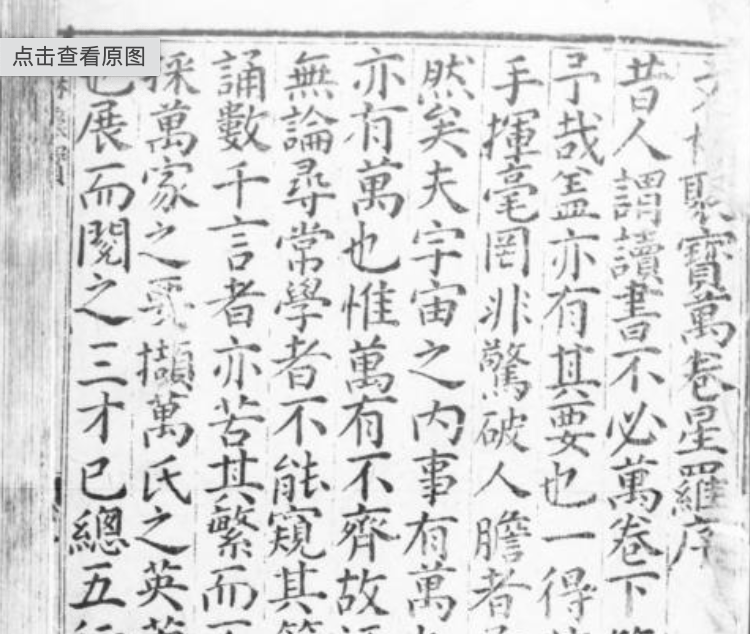 聚寶萬卷星羅序
昔人謂讀書不必萬卷下
予哉盖亦有其要也一得
手揮毫罔非驚破人膽者
然矣夫宇宙之內事有萬
亦有萬也惟萬有不齊故
無論尋常學者不能窺其
誦數千言者亦苦其繁而
採萬家之要擷萬氏之英
也展而閱之三才已總五
点击查看原图